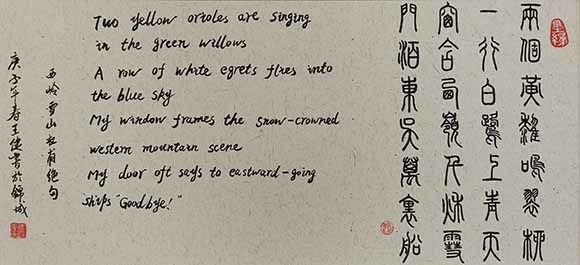 兩個黃鸝鳴翠柳
一行白鷺上青天
窗含西嶺千秋雪
門泊東吳萬裏船
Two yellow orioles are singing
in the green willows
A row of white egrets flies into
the blue sky
My window frames the snow-crowned
western mountain scene
My door oft says to eastward-going
ships "Goodbye!"
西岭雪山杜甫绝句
庚子年春王健書於錦城